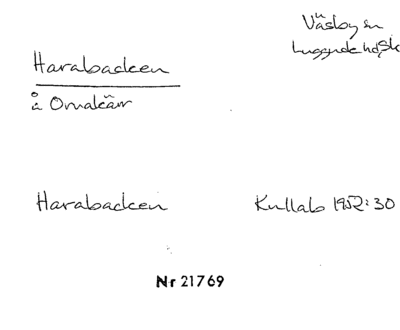 Väsby sn
Luggude hd, Sk
Harabacken
å Omakärr
Harabacken
Kullab 1952:30
Nr 21769